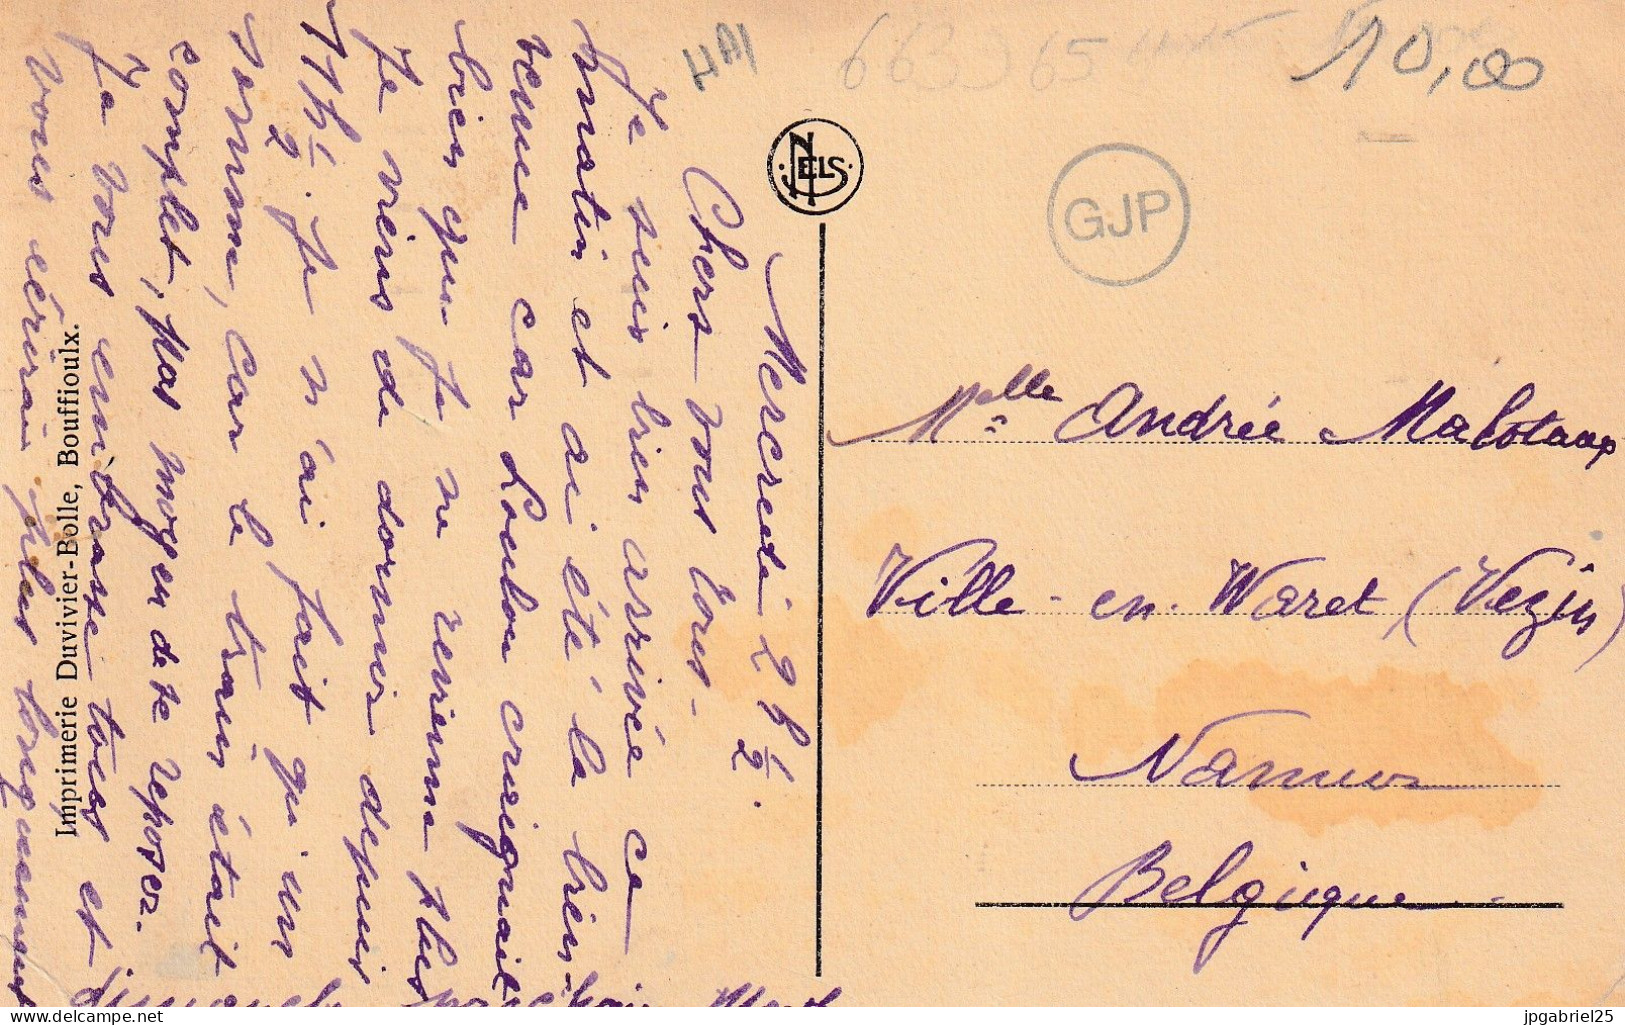 Mercredi 2 h 1/2.
Chers vous tous.
Je suis bien arrivée ce
matin et ai été la bien
venue car Loulou craignait
bien que je ne revienne plus
Je viens de dormir depuis
11h 1/2. Je n'ai fait qu'un
somme, car le train était
complet, pas moyen de se reposer.
Je vous embrasse tous et
vous écrirai plus longuement
Imprimerie Duvivier-Bolle, Bouffioulx.
NELS
HAI
663965
10,00
GJP
Melle Andrée Malotaux
Ville-en-Waret (Vezin)
Namur
Belgique
delcampe.net
jpgabriel25